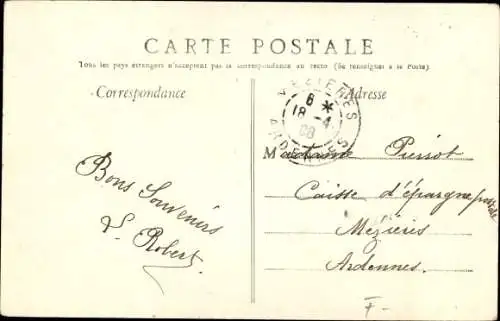 CARTE POSTALE
Tous les pays étrangers n'acceptent pas la correspondance au recto (Se renseigner à la Poste).
Correspondance
Adresse
MÉZIÈRES
6 *
18 -4
08
ARDENNES
Madame Pierrot
Caisse d'épargne postale
Mézières
Ardennes.
Bons Souvenirs
L. Robert.
F -